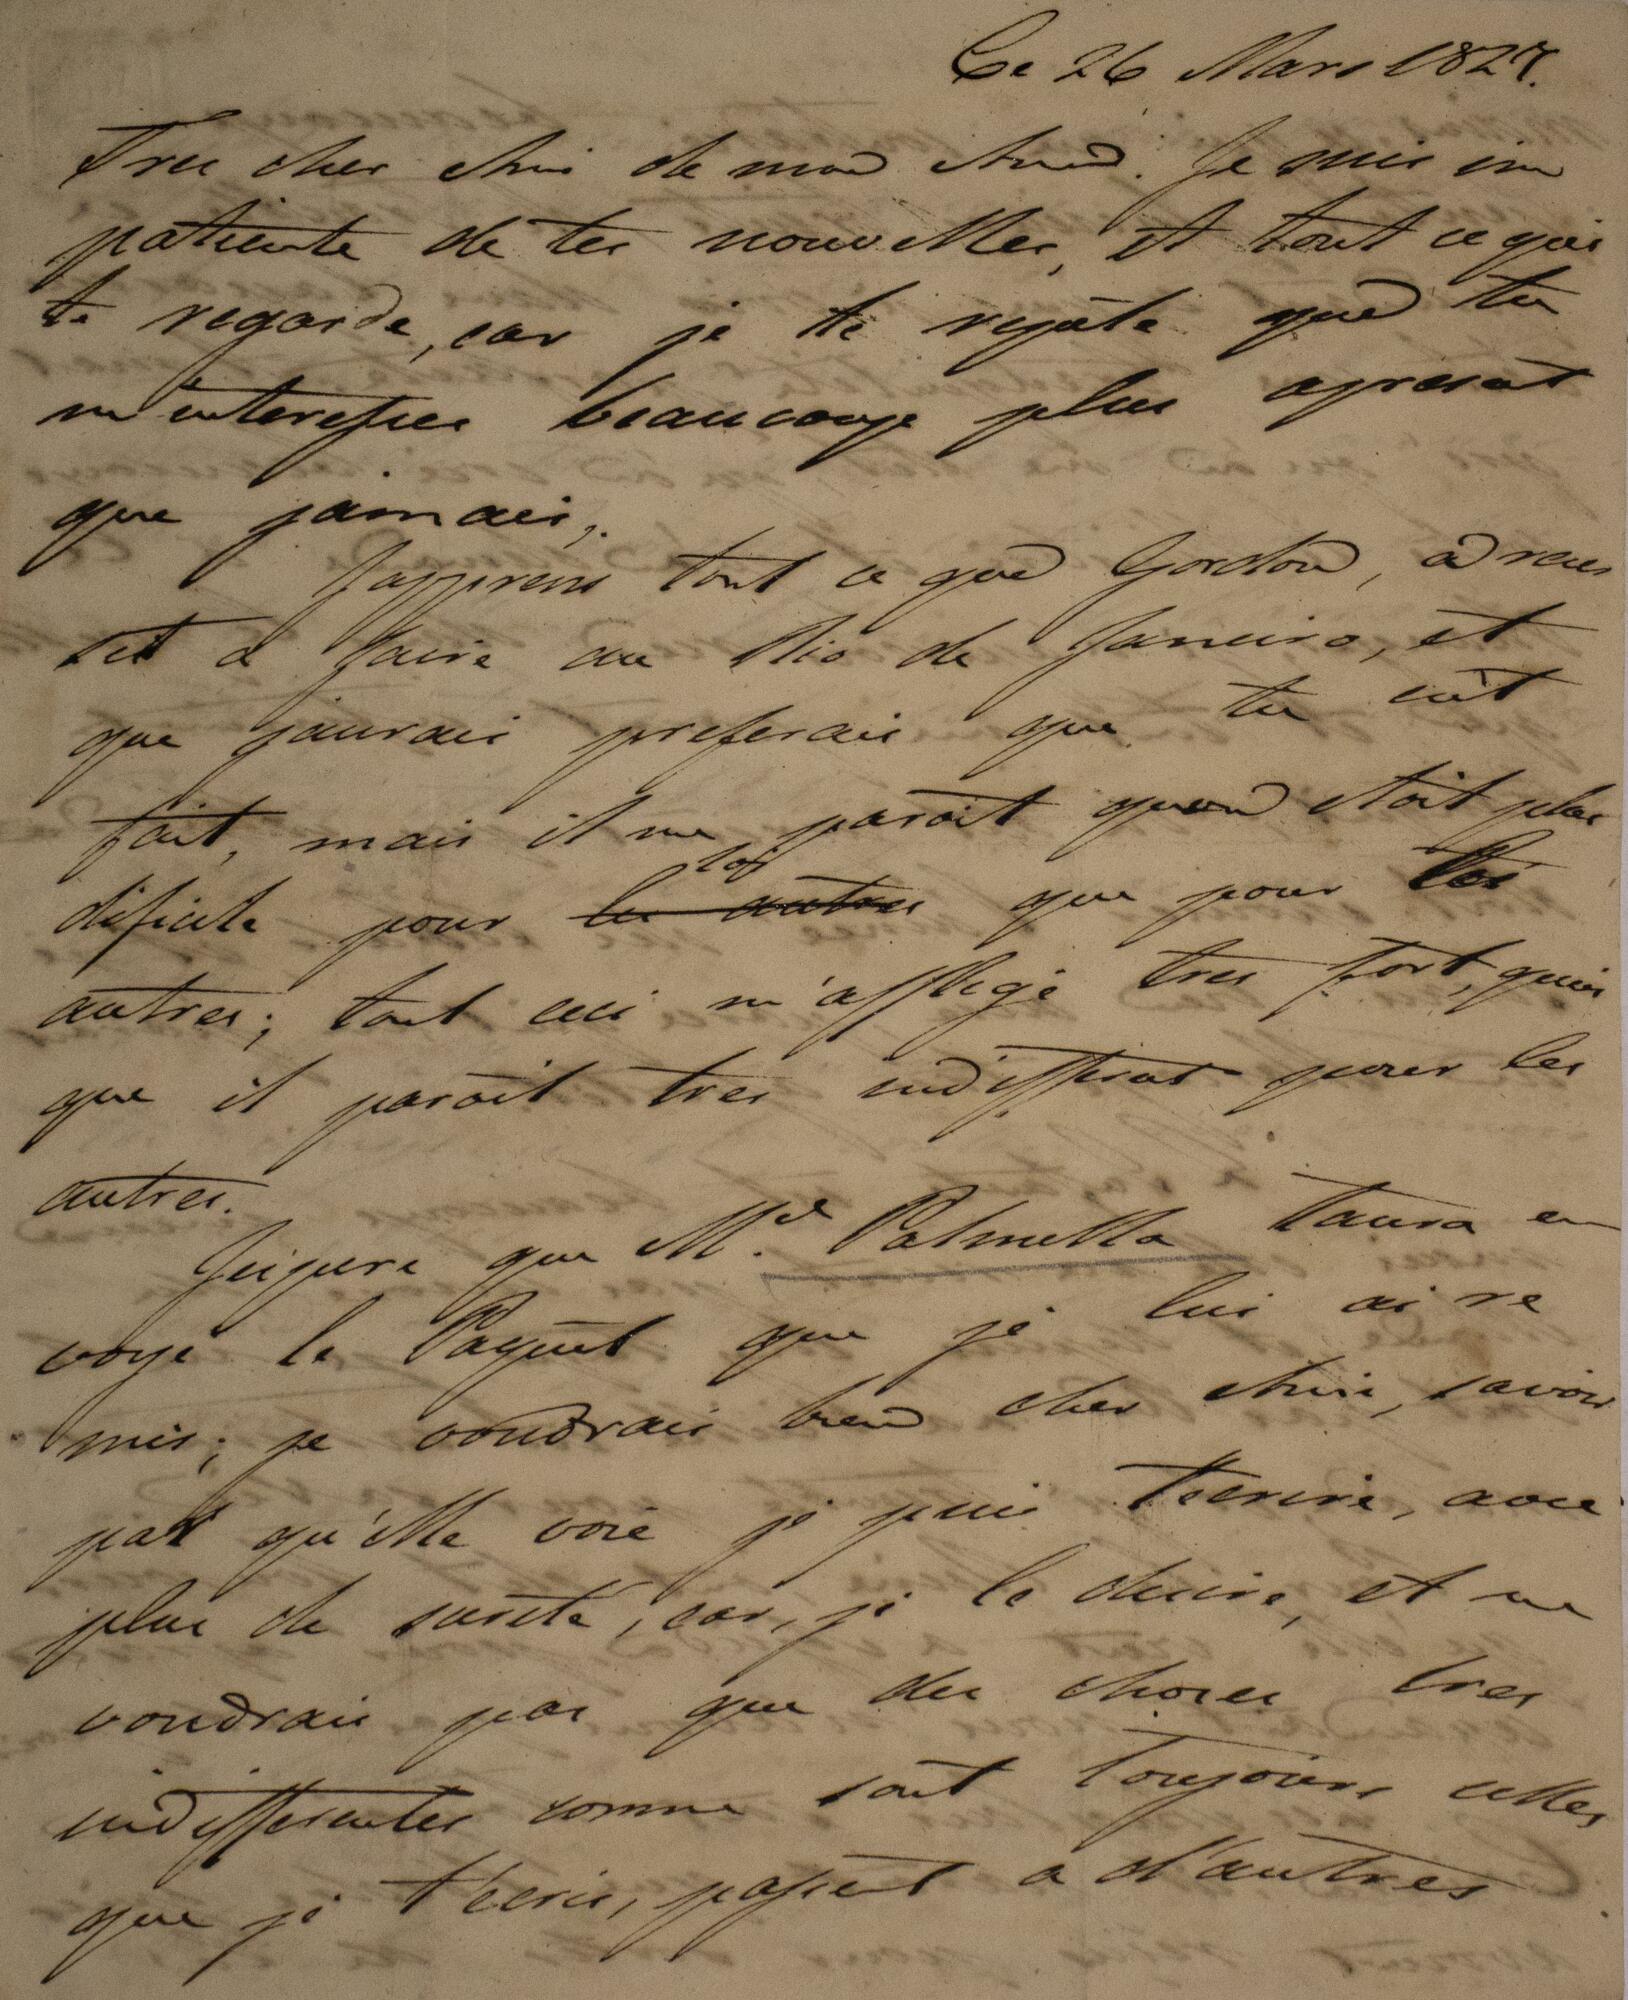 Ce 26 Mars 1827.
Tres cher Ami de mon Ame. Je suis im
patiente de tes nouvelles, et tout ce qui
te regarde, car je te repéte que tu
m'interesses beaucoup plus apresent
que jamais,.
Japprens tout ce que Gordon, a reus
sit a faire au Rio de Janeiro, et
que jaurais preferais que tu eut
fait, mais il me paroit quon etoit plus
dificile pour les autres toi que pour les
autres; tout ceci m'afflige tres fort, quoi
que il paroit tres indifferent pour les
autres.
Jespere que Mr. Palmella taura en
voyé le Paquet que je lui ai re
mis; je voudrais bien cher Ami, savoir
par qu'elle voie je puis t'ecrire, avec
plus de sureté, car, je le desire, et ne
voudrais pas que des choses tres
indifferentes comme sont toujours celles
que je t'ecris, passent a d'autres